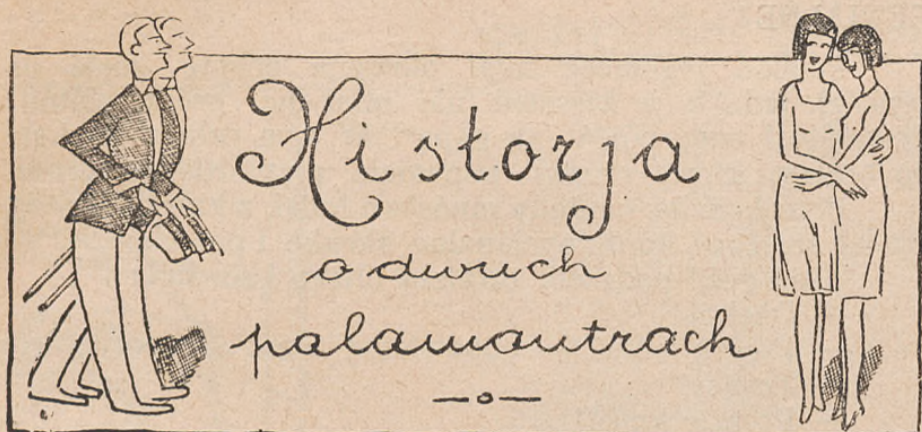 Historja
o dwuch
palamautrach